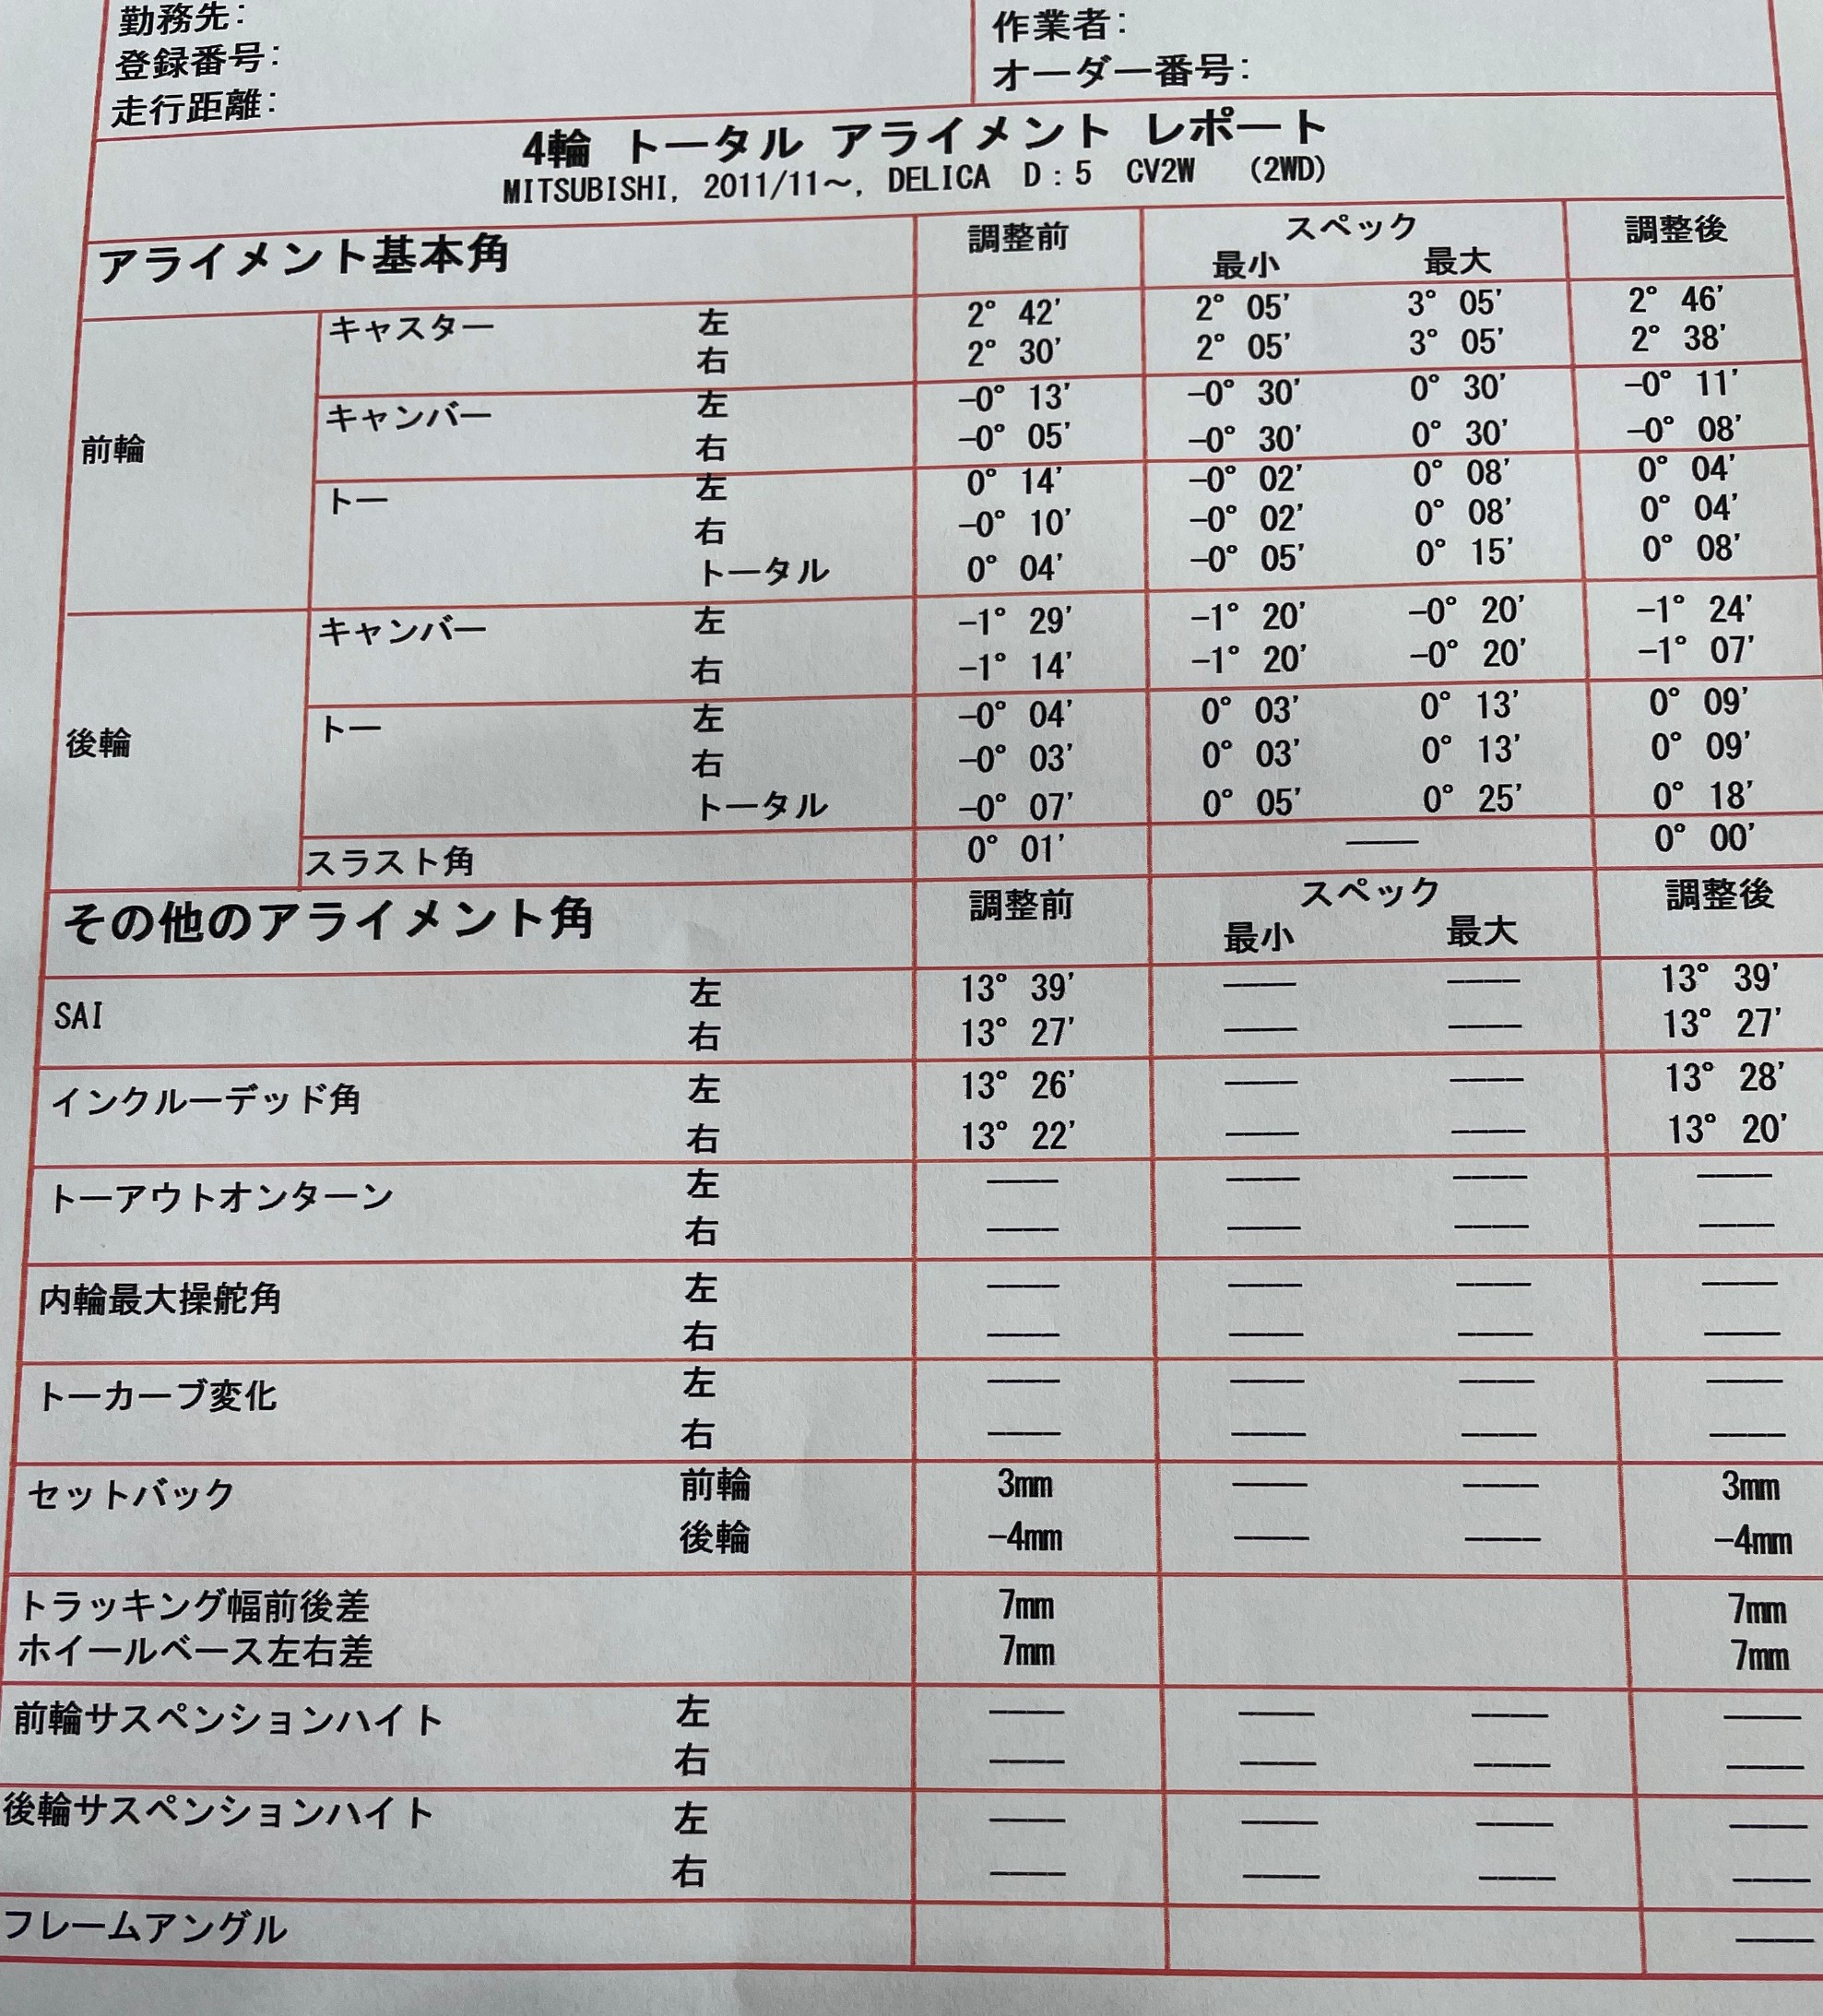 勤務先:
登録番号:
走行距離:
作業者:
オーダー番号:
4輪 トータル アライメント レポート
MITSUBISHI, 2011/11～, DELICA D:5 CV2W (2WD)
アライメント基本角 調整前 スペック 調整後
最小 最大
前輪
キャスター 左 2° 42' 2° 05' 3° 05' 2° 46'
右 2° 30' 2° 05' 3° 05' 2° 38'
キャンバー 左 -0° 13' -0° 30' 0° 30' -0° 11'
右 -0° 05' -0° 30' 0° 30' -0° 08'
トー 左 0° 14' -0° 02' 0° 08' 0° 04'
右 -0° 10' -0° 02' 0° 08' 0° 04'
トータル 0° 04' -0° 05' 0° 15' 0° 08'
後輪
キャンバー 左 -1° 29' -1° 20' -0° 20' -1° 24'
右 -1° 14' -1° 20' -0° 20' -1° 07'
トー 左 -0° 04' 0° 03' 0° 13' 0° 09'
右 -0° 03' 0° 03' 0° 13' 0° 09'
トータル -0° 07' 0° 05' 0° 25' 0° 18'
スラスト角 0° 01' —— 0° 00'
その他のアライメント角 調整前 スペック 調整後
最小 最大
SAI 左 13° 39' —— —— 13° 39'
右 13° 27' —— —— 13° 27'
インクルーデッド角 左 13° 26' —— —— 13° 28'
右 13° 22' —— —— 13° 20'
トーアウトオンターン 左 —— —— —— ——
右 —— —— —— ——
内輪最大操舵角 左 —— —— —— ——
右 —— —— —— ——
トーカーブ変化 左 —— —— —— ——
右 —— —— —— ——
セットバック 前輪 3mm —— —— 3mm
後輪 -4mm —— —— -4mm
トラッキング幅前後差 7mm 7mm
ホイールベース左右差 7mm 7mm
前輪サスペンションハイト 左 —— —— —— ——
右 —— —— —— ——
後輪サスペンションハイト 左 —— —— —— ——
右 —— —— —— ——
フレームアングル ——